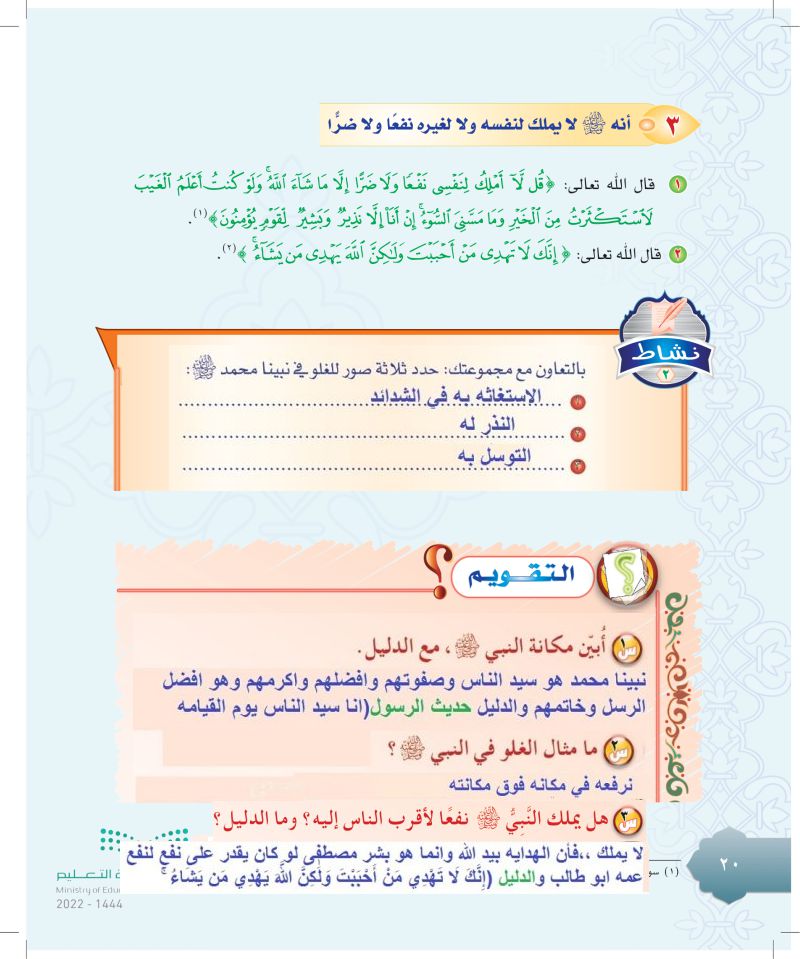 ٣ أنه ﷺ لا يملك لنفسه ولا لغيره نفعًا ولا ضرًّا
١ قال الله تعالى: ﴿قُل لَّآ أَمْلِكُ لِنَفْسِى نَفْعًا وَلَا ضَرًّا إِلَّا مَا شَآءَ ٱللَّهُ ۚ وَلَوْ كُنتُ أَعْلَمُ ٱلْغَيْبَ
لَٱسْتَكْثَرْتُ مِنَ ٱلْخَيْرِ وَمَا مَسَّنِىَ ٱلسُّوٓءُ ۚ إِنْ أَنَا۠ إِلَّا نَذِيرٌ وَبَشِيرٌ لِّقَوْمٍ يُؤْمِنُونَ﴾(١).
٢ قال الله تعالى: ﴿ إِنَّكَ لَا تَهْدِى مَنْ أَحْبَبْتَ وَلَٰكِنَّ ٱللَّهَ يَهْدِى مَن يَشَآءُ ۚ ﴾(٢).
نشاط
٢
بالتعاون مع مجموعتك: حدد ثلاثة صور للغلو في نبينا محمد ﷺ:
الاستغاثه به في الشدائد
النذر له
التوسل به
التقويم
س١ أُبيّن مكانة النبي ﷺ، مع الدليل.
نبينا محمد هو سيد الناس وصفوتهم وافضلهم واكرمهم وهو افضل
الرسل وخاتمهم والدليل حديث الرسول(انا سيد الناس يوم القيامه
س٢ ما مثال الغلو في النبي ﷺ ؟
نرفعه في مكانه فوق مكانته
س٣ هل يملك النَّبِيُّ ﷺ نفعًا لأقرب الناس إليه؟ وما الدليل؟
لا يملك ،،فأن الهدايه بيد الله وانما هو بشر مصطفى لو كان يقدر على نفع لنفع
عمه ابو طالب والدليل (إِنَّكَ لَا تَهْدِي مَنْ أَحْبَبْتَ وَلَٰكِنَّ اللَّهَ يَهْدِي مَن يَشَاءُ ۚ
(١) سو
٢٠
ة التعليم
Ministry of Edu
2022 - 1444